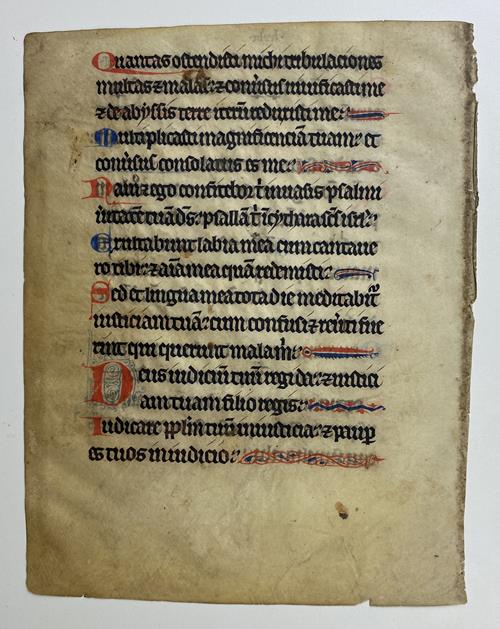 Quantas ostendisti michi tribulaciones
multas ⁊ malas: ⁊ conuersus uiuificasti me
⁊ de abyssis terre iterū reduxisti me.
Multiplicasti magnificenciā tuam: et
conuersus consolatus es me.
Nam ⁊ ego confitebor t' in uasis psalmi
ueritatē tuā ds: psallā t' in cythara sc̄s isrl'.
Exultabunt labia mea cum cantaue
ro tibi: ⁊ aīa mea quā redemisti.
Sed et lingua mea tota die meditabit'
iusticiam tuā: cum confusi ⁊ reueriti fue
rint qui querunt mala m'.
Deus iudiciū tuū regi da: ⁊ iustici
am tuam filio regis.
Iudicare pplm tuū in iusticia: ⁊ paup
es tuos in iudicio.